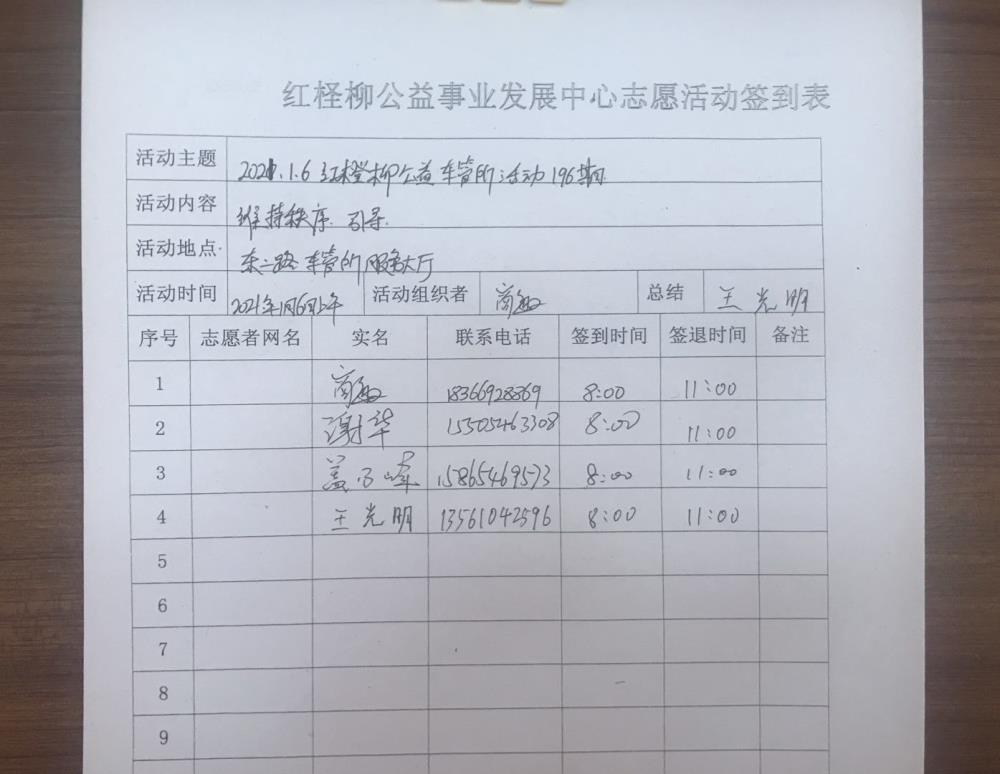 红柽柳公益事业发展中心志愿活动签到表
活动主题 2021.1.6 红橙柳公益车管所活动196期
活动内容 维持秩序 引导
活动地点 东二路车管所服务大厅
活动时间 2021年1月6日上午 活动组织者 商 总结 王光明
序号 志愿者网名 实名 联系电话 签到时间 签退时间 备注
1 商 18366928869 8:00 11:00
2 谢华 15305463308 8:00 11:00
3 盖 峰 15865469573 8:00 11:00
4 王光明 13561042596 8:00 11:00
5
6
7
8
9